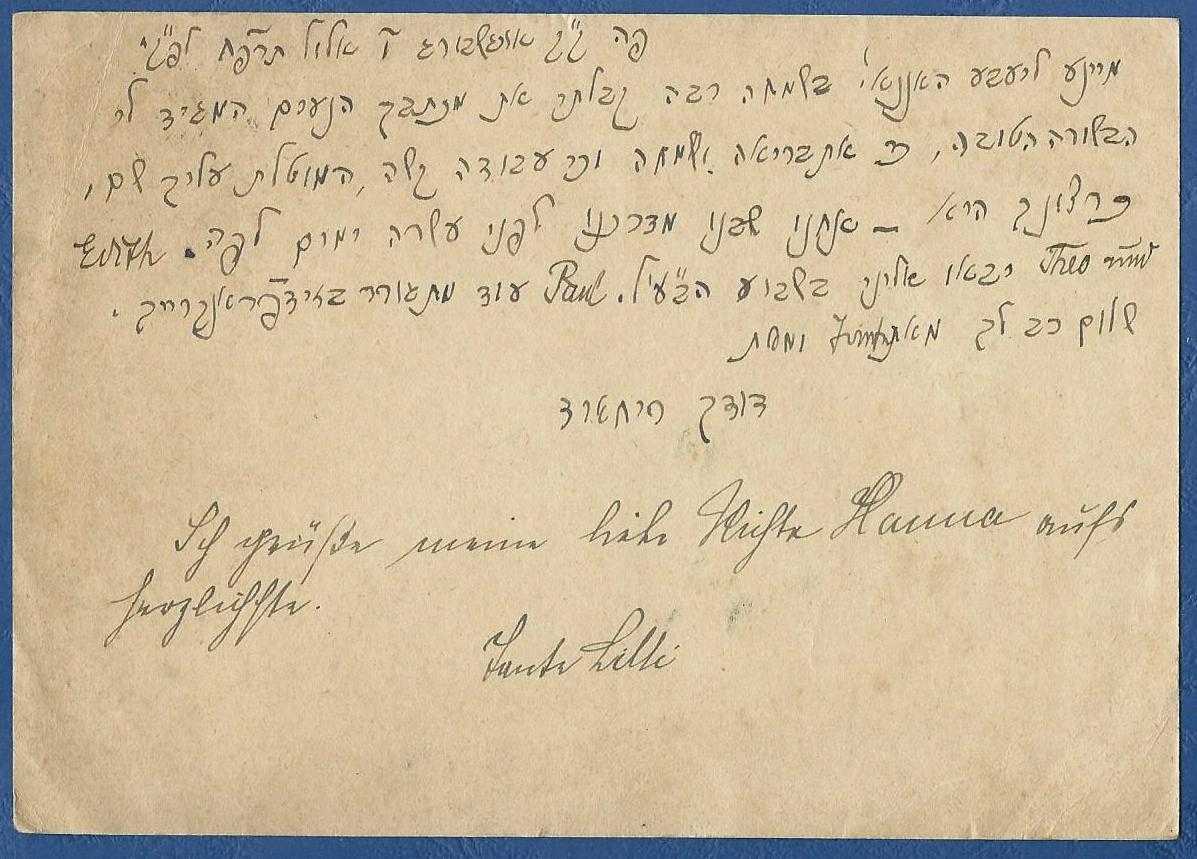 פה ק"ק אויגשבורג ו' אלול תרפ"ח לפ"ק.
מיינע ליעבע האננא! בשמחה רבה קבלתי את מכתבך הנעים המגיד לי
הבשורה הטובה, כי את בריאה ושמחה וכי עבודה קשה, המוטלת עליך שם,
כרצונך היא – אנחנו שבנו מדרכנו לפני עשרה ימים לפה. Edith
und Theo יבאו אלינו בשבוע הבע"ל. Paul עוד מתגורר בזידפראנקרייך.
שלום רב לך מאת ומאת
דודך ריכארד
Ich grüße meine liebe Nichte Hanna aufs
herzlichste.
Tante Lilli